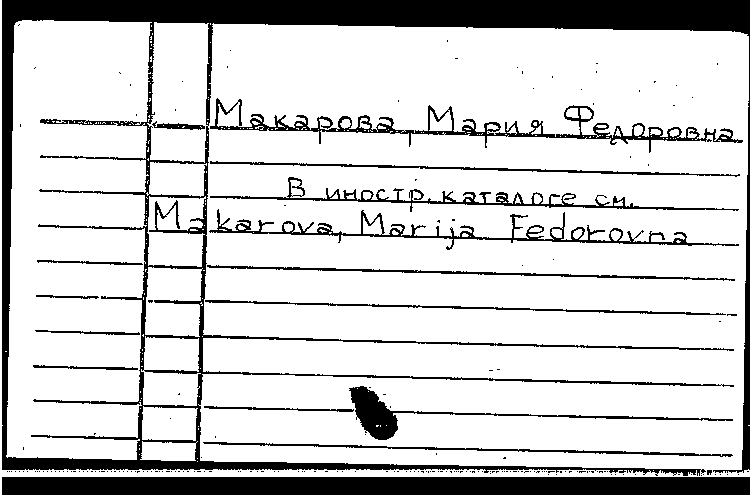 Макарова, Мария Федоровна
В иностр. каталоге см.
Makarova, Marija Fedorovna